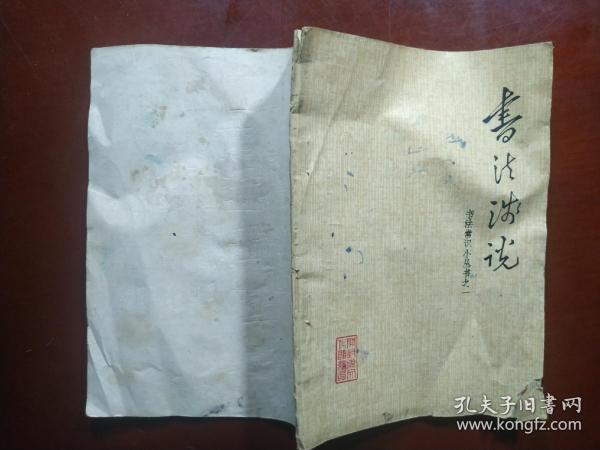 书法浅说
书法常识小丛书之一
孔夫子旧书网
www.kongfz.com